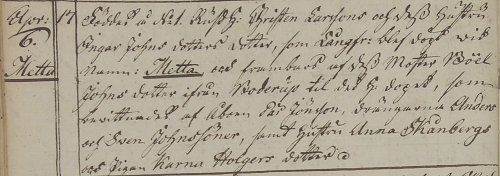 Apr: 17 Föddes u det. Ryss H: Christen Larssons och dess Hustru
6. Ingar Johns dotters dotter, som blef döpt wid
Metta namn: Metta och frambars af dess Moster Böel
Johns dotter ifrån Boderup til det H: dopet, som
bewittnades af Åboen Pär Jönson, drängarna Anders
och Sven Johnssöner, samt Hustru Anna Skånbergs
och Pigan Karna Holgers dotter